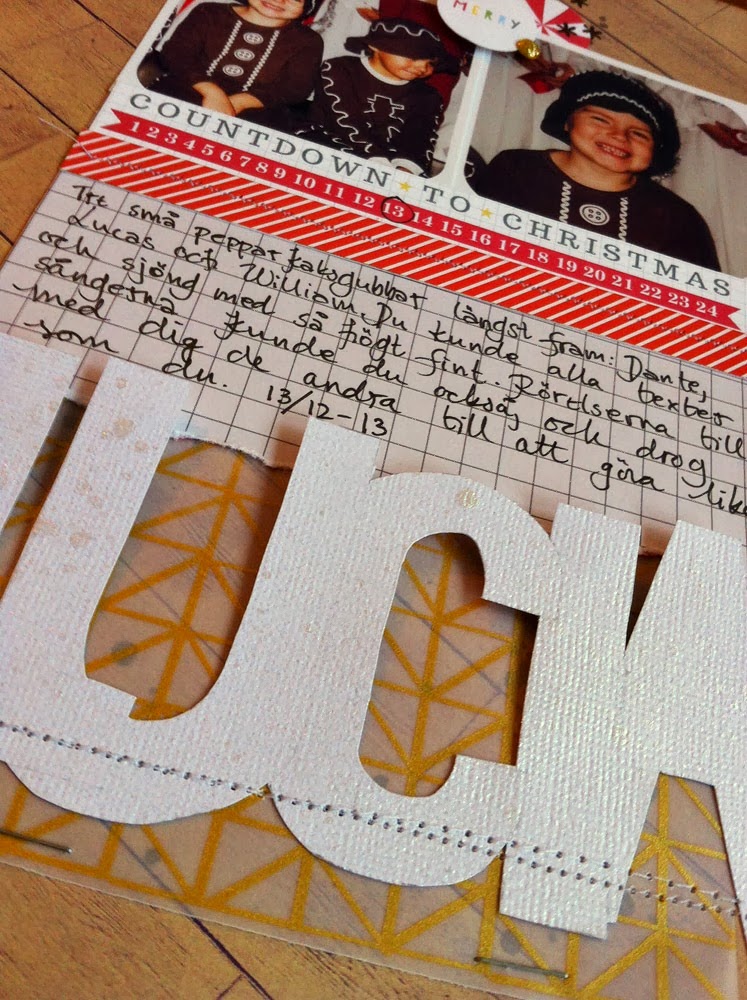 MERRY
COUNTDOWN TO CHRISTMAS
1 2 3 4 5 6 7 8 9 10 11 12 13 14 15 16 17 18 19 20 21 22 23 24
Tre små pepparkaksgubbar längst fram: Dante,
Lucas och William. Du kunde alla texter
och sjöng med så högt fint. Rörelserna till
sångerna kunde du också och drog
med dig de andra till att göra lika
som du. 13/12-13
LUCIA